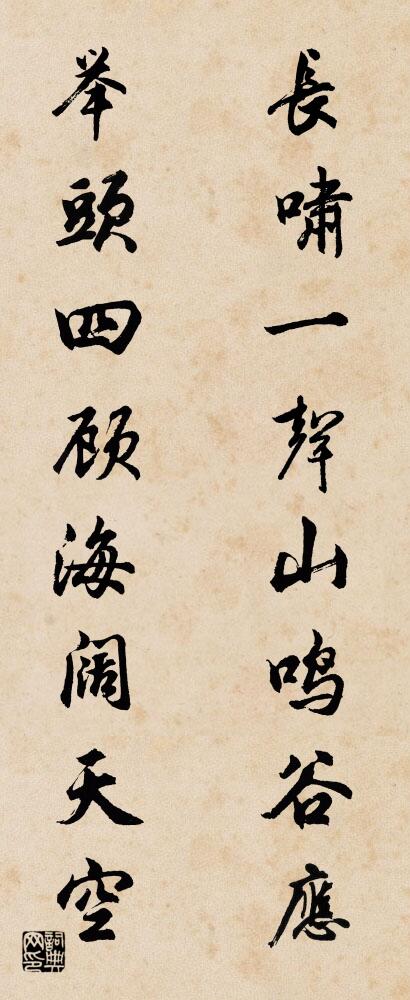 長嘯一聲山鳴谷應
举頭四顾海阔天空
詞典网印